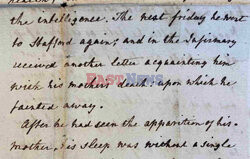 the intelligence. The next friday he went
to Stafford again; and in the Infirmary
received another letter acquainting him
with his mothers death: upon which he
fainted away.
After he had seen the apparition of his
mother, his sleep was without a single
EAST NEWS